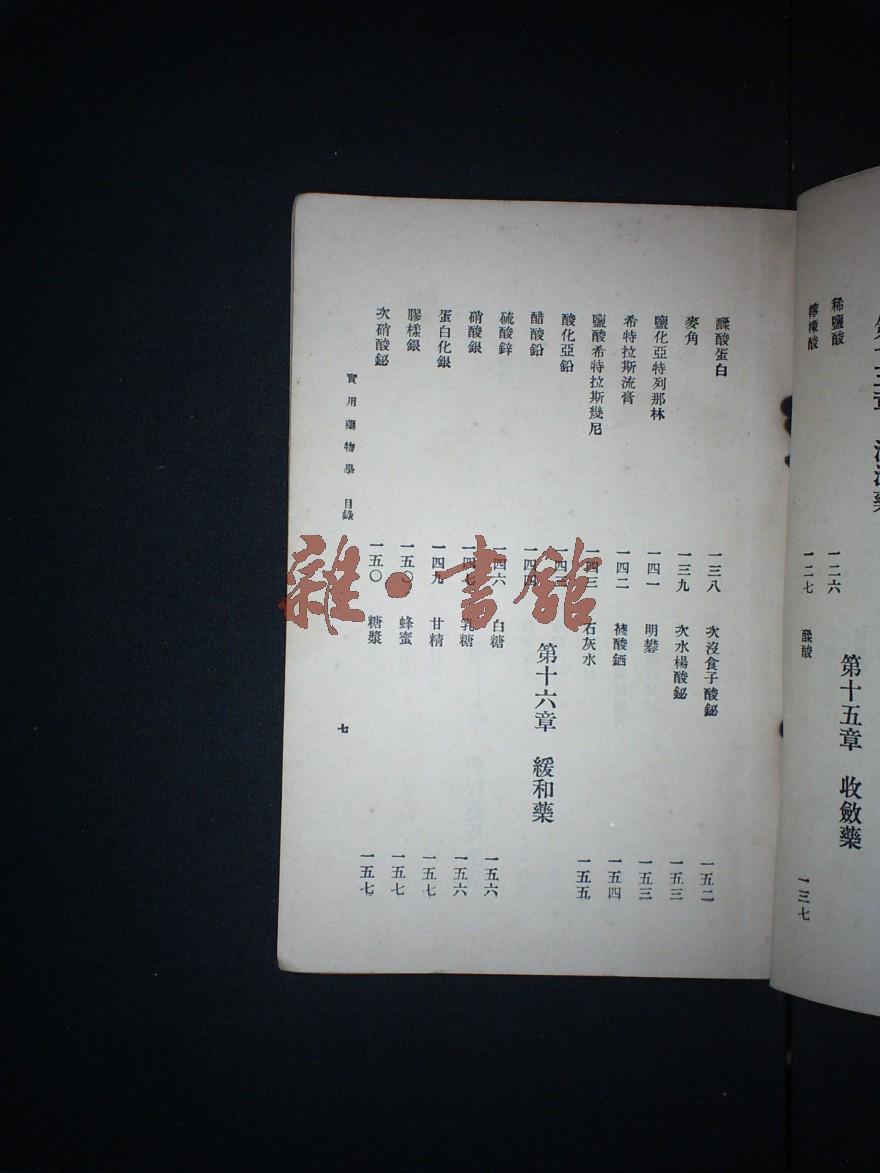 稀鹽酸 一二六
檸檬酸 一二七
第十五章 收斂藥
鞣酸 一三七
鞣酸蛋白 一三八
麥角 一三九
鹽化亞特列那林 一四一
希特拉斯流膏 一四二
鹽酸希特拉斯幾尼 一四三
酸化亞鉛 一四三
醋酸鉛 一四四
硫酸鋅 一四六
硝酸銀 一四七
蛋白化銀 一四九
膠樣銀 一五〇
次硝酸鉍 一五〇
次沒食子酸鉍 一五二
次水楊酸鉍 一五三
明礬 一五三
蓚酸 一五四
石灰水 一五五
第十六章 緩和藥
白糖 一五六
乳糖 一五六
甘精 一五七
蜂蜜 一五七
糖漿 一五七
實用藥物學 目錄 七
雜·書館